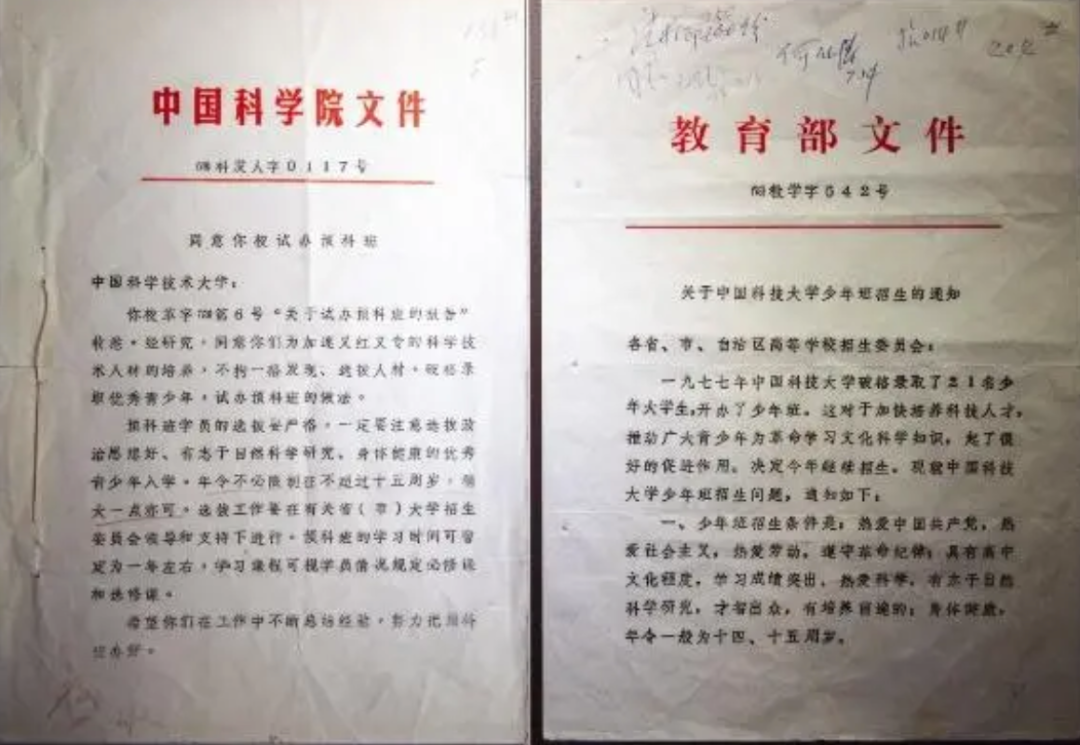 中国科学院文件
(78)科发人字0117号
同意你校试办预科班
中国科学技术大学：
你校革字(78)第6号“关于试办预科班的报告”
收悉。经研究，同意你们为加速又红又专的科学技
术人材的培养，不拘一格发现、选拔人材，破格录
取优秀青少年，试办预科班的做法。
预科班学员的选拔要严格，一定要注意选拔政
治思想好、有志于自然科学研究、身体健康的优秀
青少年入学。年令不必限制在不超过十五周岁，稍
大一点亦可。选拔工作要在有关省（市）大学招生
委员会领导和支持下进行。预科班的学习时间可暂
定为一年左右，学习课程可视学员情况规定必修课
和选修课。
希望你们在工作中不断总结经验，努力把预科
班办好。
教育部文件
(78)教学字542号
关于中国科技大学少年班招生的通知
各省、市、自治区高等学校招生委员会：
一九七七年中国科技大学破格录取了21名少
年大学生，开办了少年班。这对于加快培养科技人才，
推动广大青少年为革命学习文化科学知识，起了很
好的促进作用。决定今年继续招生。现就中国科技
大学少年班招生问题，通知如下：
一、少年班招生条件是：热爱中国共产党，热
爱社会主义，热爱劳动，遵守革命纪律；具有高中
文化程度，学习成绩突出，热爱科学，有志于自然
科学研究，才智出众，有培养前途的；身体健康。
年令一般为十四、十五周岁。